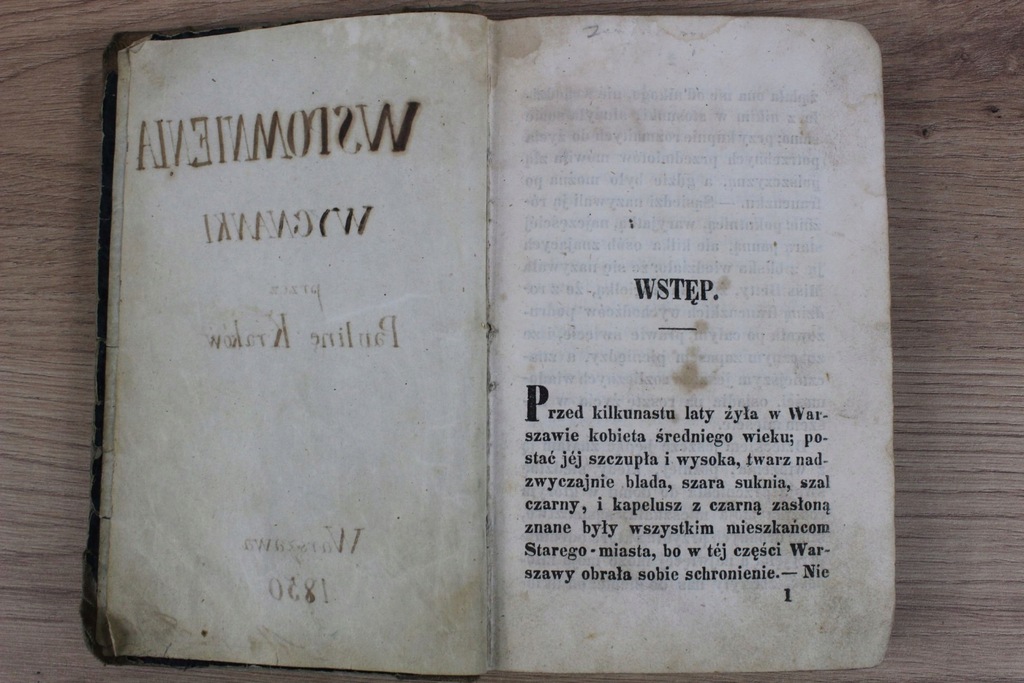 WSPOMNIENIA
WYGNANKI
przez
Paulinę Kraków
Warszawa
1850
WSTĘP.
Przed kilkunastu laty żyła w War-
szawie kobieta średniego wieku; po-
stać jéj szczupła i wysoka, twarz nad-
zwyczajnie blada, szara suknia, szal
czarny, i kapelusz z czarną zasłoną
znane były wszystkim mieszkańcom
Starego-miasta, bo w téj części War-
szawy obrała sobie schronienie.— Nie
1